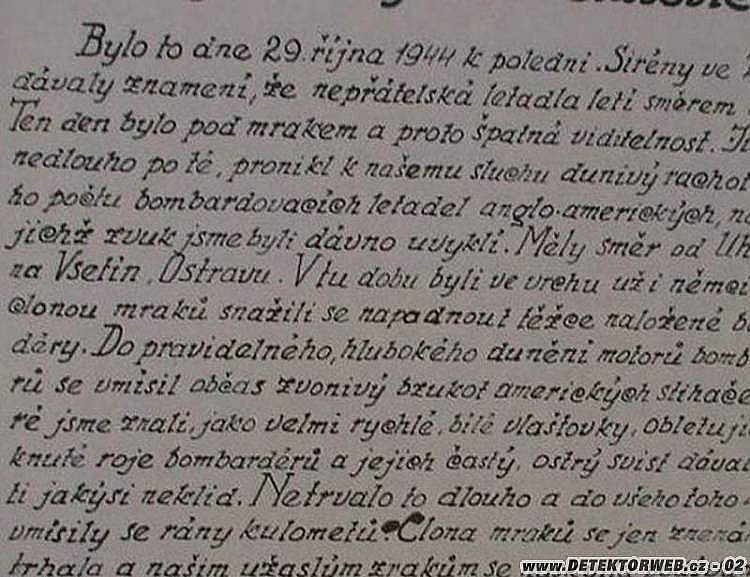 Bylo to dne 29. října 1944 k poledni. Sirény ve
dávaly znamení, že nepřátelská letadla letí směrem
Ten den bylo pod mrakem a proto špatná viditelnost.
nedlouho po té, pronikl k našemu sluchu dunivý rachot
ho počtu bombardovacích letadel anglo-amerických, n
jichž zvuk jsme byli dávno uvyklí. Měly směr od Uh
na Vsetín, Ostravu. V tu dobu byli ve vzchu už i němci
clonou mraků snažili se napadnout těžce naložené b
déry. Do pravidelného, hlubokého dunění motorů bomb
rů se vmísil občas zvonivý bzukot amerických stíhače
ré jsme znali, jako velmi rychlé, bílé vlaštovky, obletují
knuté roje bombardérů a jejich častý, ostrý svist dával
ti jakýsi neklid. Netrvalo to dlouho a do všeho toho
vmísily se rány kulometů. Clona mraků se jen znená
trhala a našim užaslým zrakům se
www.DETEKTORWEB.cz - 02